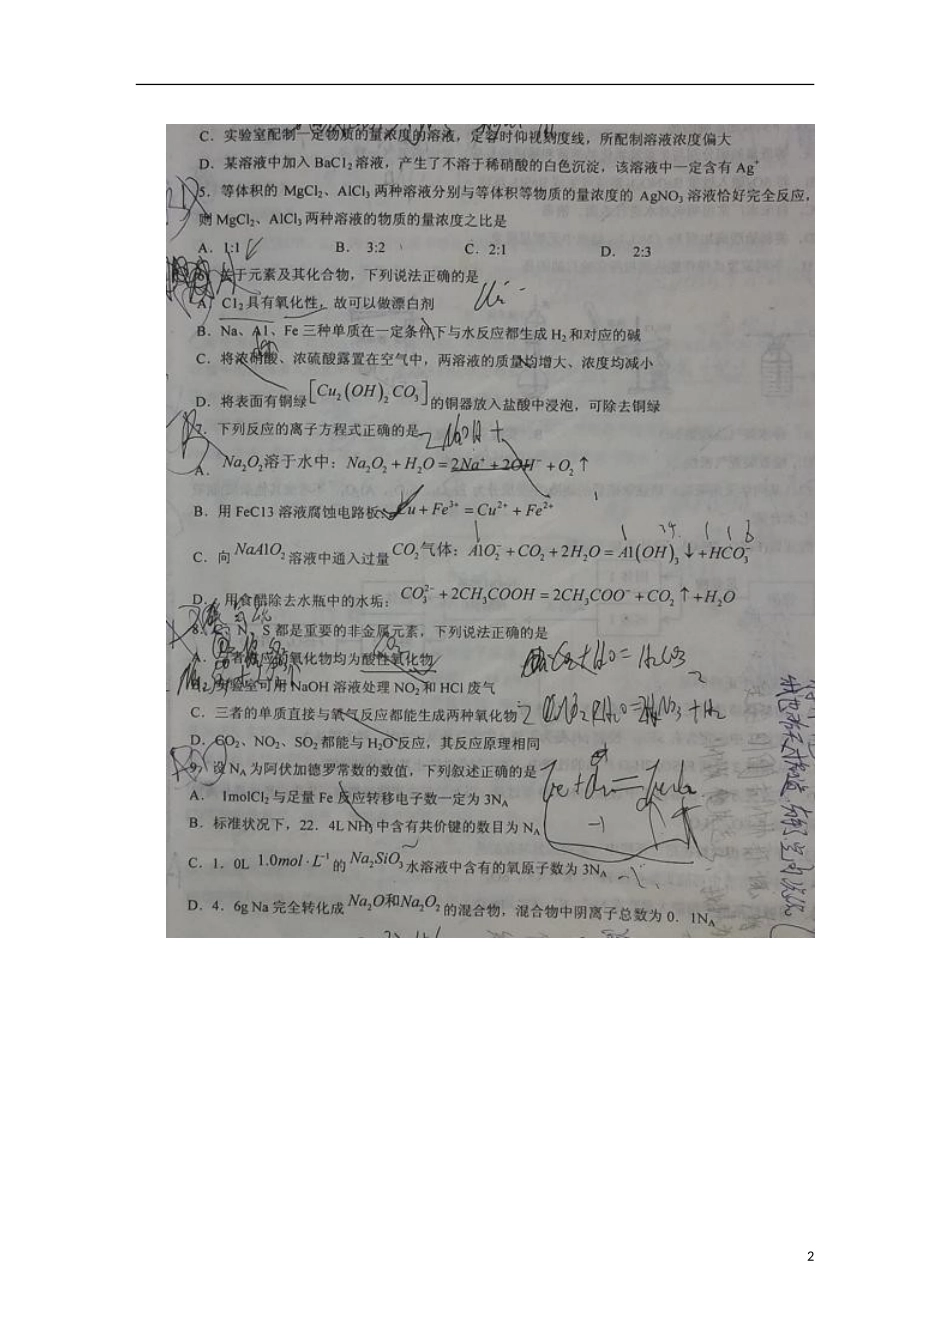 C．实验室配制一定物质的量浓度的溶液，定容时仰视刻度线，所配制溶液浓度偏大
D．某溶液中加入 BaCl₂ 溶液，产生了不溶于稀硝酸的白色沉淀，该溶液中一定含有 Ag⁺
5．等体积的 MgCl₂、AlCl₃ 两种溶液分别与等体积等物质的量浓度的 AgNO₃ 溶液恰好完全反应，
则 MgCl₂、AlCl₃ 两种溶液的物质的量浓度之比是
A．1:1 B．3:2 C．2:1 D．2:3
6．关于元素及其化合物，下列说法正确的是
A．Cl₂具有氧化性，故可以做漂白剂
B．Na、Al、Fe 三种单质在一定条件下与水反应都生成 H₂ 和对应的碱
C．将浓硝酸、浓硫酸露置在空气中，两溶液的质量均增大、浓度均减小
D．将表面有铜绿[Cu₂(OH)₂CO₃]的铜器放入盐酸中浸泡，可除去铜绿
7．下列反应的离子方程式正确的是
A．Na₂O₂溶于水中：Na₂O₂ + H₂O = 2Na⁺ + 2OH⁻ + O₂↑
B．用 FeCl3 溶液腐蚀电路板：Cu + Fe³⁺ = Cu²⁺ + Fe²⁺
C．向 NaAlO₂ 溶液中通入过量 CO₂气体：AlO₂⁻ + CO₂ + 2H₂O = Al(OH)₃↓ + HCO₃⁻
D．用食醋除去水瓶中的水垢：CO₃²⁻ + 2CH₃COOH = 2CH₃COO⁻ + CO₂↑ + H₂O
8．C、N、S 都是重要的非金属元素，下列说法正确的是
A．三者对应的氧化物均为酸性氧化物
B．实验室可用 NaOH 溶液处理 NO₂ 和 HCl 废气
C．三者的单质直接与氧气反应都能生成两种氧化物
D．CO₂、NO₂、SO₂ 都能与 H₂O 反应，其反应原理相同
9．设 N_A 为阿伏加德罗常数的数值，下列叙述正确的是
A．1molCl₂ 与足量 Fe 反应转移电子数一定为 3N_A
B．标准状况下，22．4L NH₃ 中含有共价键的数目为 N_A
C．1．0L 1.0mol·L⁻¹ 的 Na₂SiO₃ 水溶液中含有的氧原子数为 3N_A
D．4．6g Na 完全转化成 Na₂O和Na₂O₂ 的混合物，混合物中阴离子总数为 0．1N_A
2